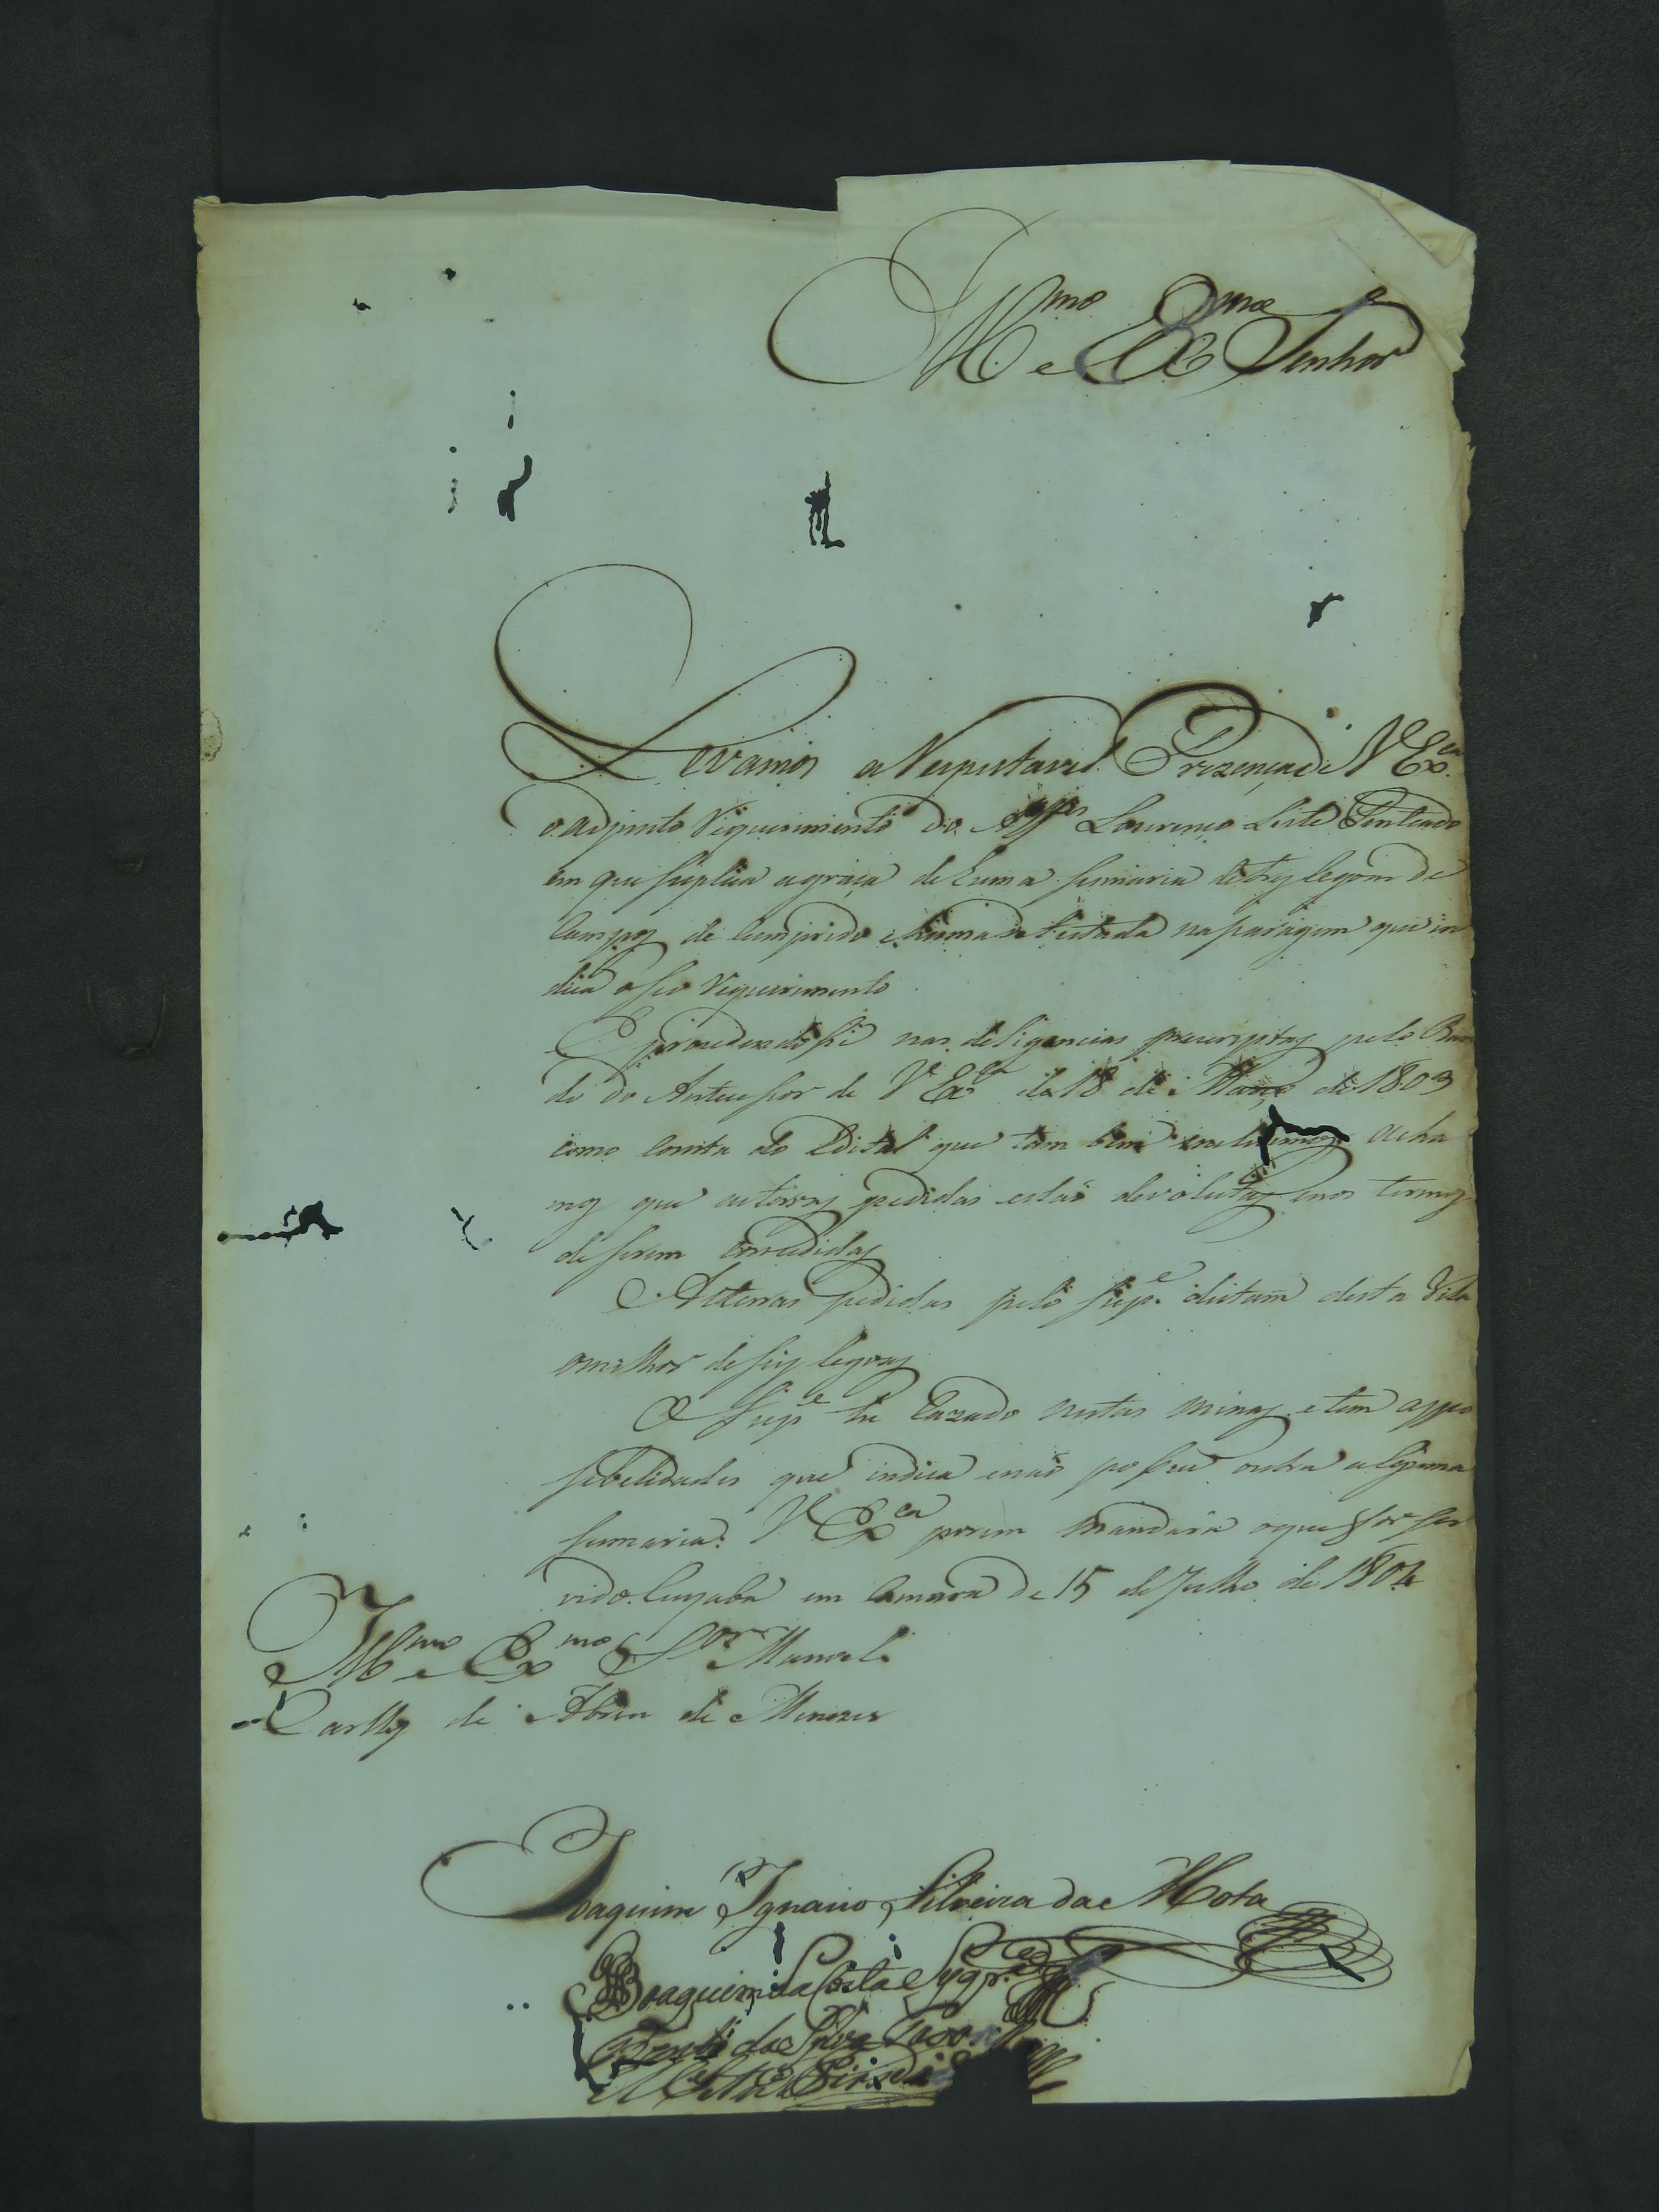 Ill.mo e Ex.mo Senhor
Levamos a Respeitavel Prezença de V Ex.ca
o adjunto Requerimento do Alfes Lourenço Leite Penteado
em que suplica a graça de huma sismaria de tres legoas de
campos de cumprido e huma de testada na paragem que in
dica o seo Requerimento
E procedendo se nas deligencias prescryptas pelo Ban
do do Antecessor de V Ex.ca de 18 de Março de 1803
como consta do Edital que tam bem incluimos acha
mos que as terras pedidas estaõ devolutas e nos termos
de serem concedidas
As terras pedidas pelo Sup.e distam desta Vila
o milhor de seis legoas
O Sup.e he cazado nestas minas e tem as po
sibelidades que indica e naõ possue outra alguma
sismaria. V Ex.ca porem mandará o que for ser
vido. Cuyaba em Camara de 15 de Julho de 1804
Ill.mo e Ex.mo S.or Manoel
Carllos de Abreu de Menezes
Joaquim Ignacio Silveira da Mota
Joaquim da Costa Syqr.a
Bento da Silva
Pires de